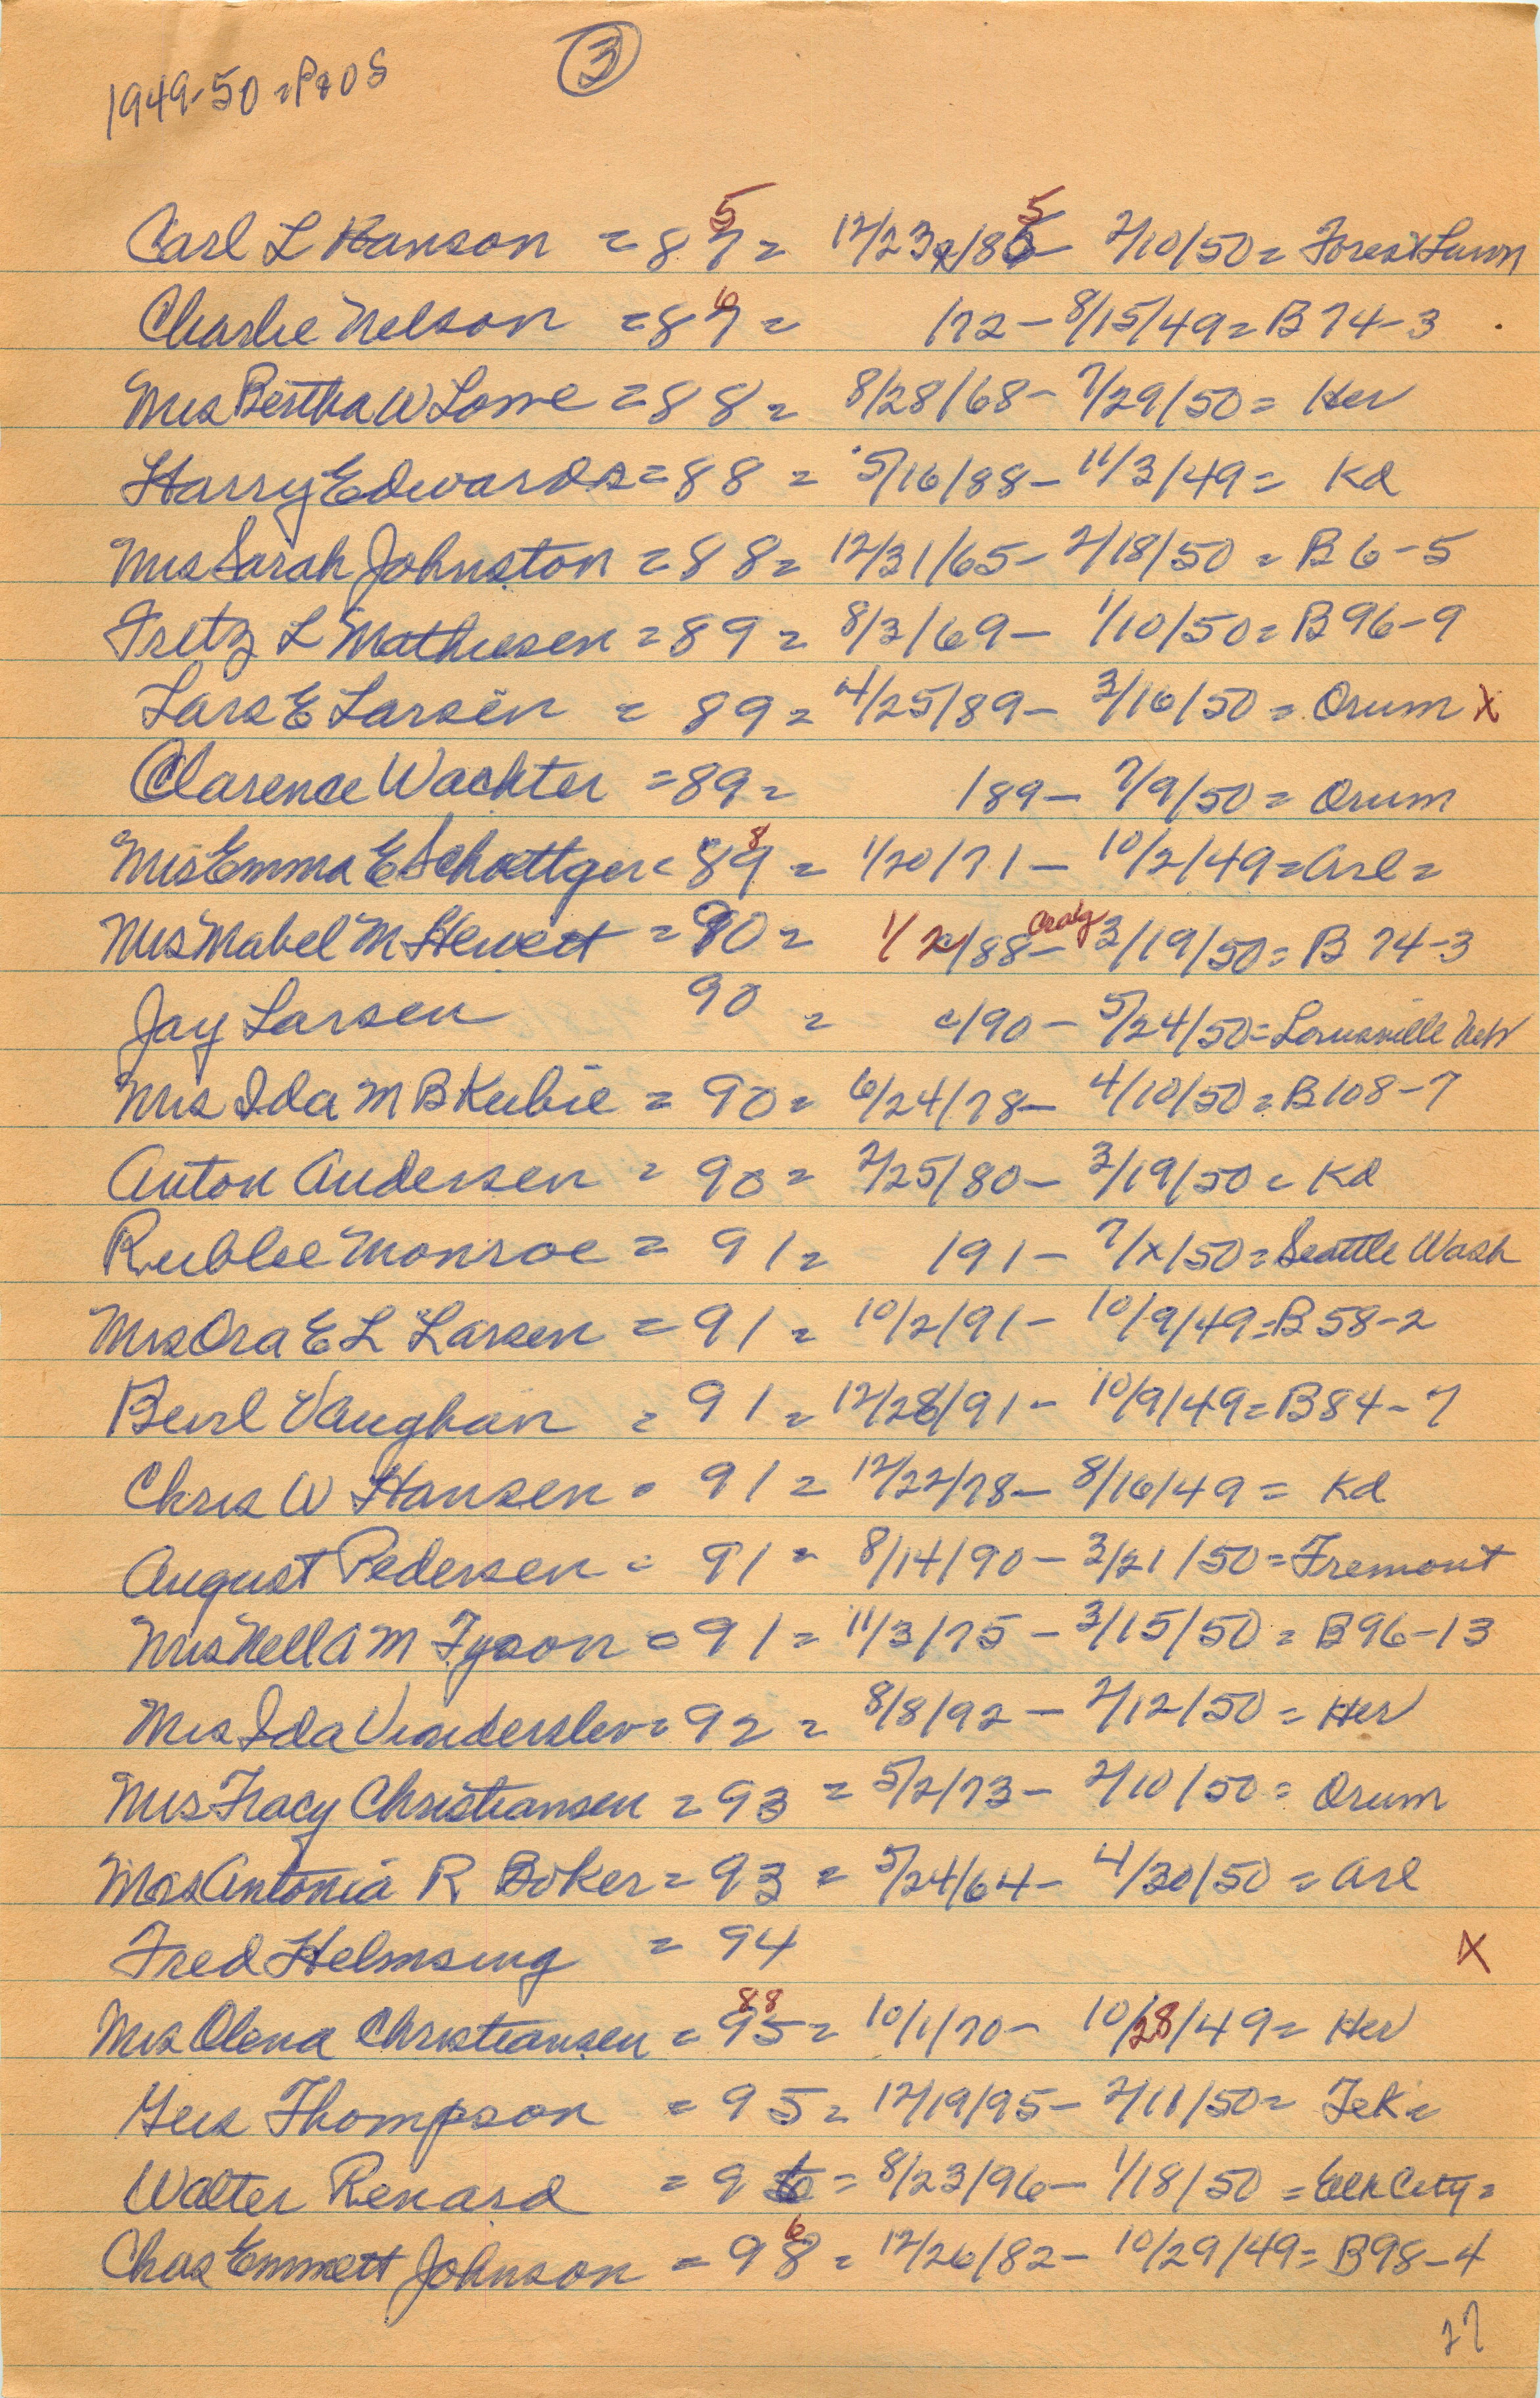 1949-50 = P&OS
3
Carl L Hanson = 87 5 = 12/23/86 5 - 2/10/50 = Forest Lawn
Charlie Nelson = 87 6 = 172 - 8/15/49 = B 74-3
Mrs Bertha W Lowe = 88 = 8/28/68 - 7/29/50 = Her
Harry Edwards = 88 = 5/16/88 - 11/3/49 = Kd
Mrs Sarah Johnston = 88 = 12/31/65 - 2/18/50 = B 6-5
Fritz L Mathiesen = 89 = 8/3/69 - 1/10/50 = B 96-9
Lars E Larsen = 89 = 4/25/89 - 3/16/50 = Orum X
Clarence Wachter = 89 = 189 - 7/9/50 = Orum
Mrs Emma E Schoettger = 89 8 = 1/20/71 - 10/2/49 = Arl =
Mrs Mabel M Hewett = 90 = 1/2/88 - Craig 3/19/50 = B 74-3
Jay Larsen 90 = c/90 - 5/24/50 = Louisville Neb
Mrs Ida M B Kubie = 90 = 6/24/78 - 4/10/50 = B 108-7
Anton Andersen = 90 = 2/25/80 - 3/19/50 = Kd
Rublee Monroe = 91 = 191 - 7/x/50 = Seattle Wash
Mrs Ora E L Larsen = 91 = 10/2/91 - 10/9/49 = B 58-2
Burl Vaughan = 91 = 12/28/91 - 10/9/49 = B 84-7
Chris W Hansen = 91 = 12/22/78 - 8/16/49 = Kd
August Pedersen = 91 = 8/14/90 - 3/21/50 = Fremont
Mrs Nell A M Tyson = 91 = 11/3/75 - 3/15/50 = B 96-13
Mrs Ida Vinderslev = 92 = 8/8/92 - 2/12/50 = Her
Mrs Tracy Christiansen = 93 = 5/2/73 - 2/10/50 = Orum
Mrs Antonia R Boker = 93 = 5/24/64 - 4/30/50 = Arl
Fred Helmsing = 94 X
Mrs Olena Christiansen = 95 88 = 10/1/70 - 10/28/49 = Her
Gus Thompson = 95 = 12/19/95 - 2/11/50 = Tek =
Walter Renard = 96 = 8/23/96 - 1/18/50 = Elk City =
Chas Emmett Johnson = 98 6 = 12/26/82 - 10/29/49 = B 98-4
27